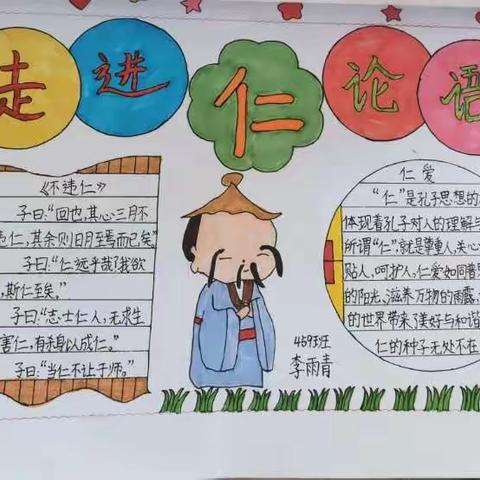 走进仁论语
《不违仁》
子曰:“回也,其心三月不
违仁,其余则日月至焉而已矣”
子曰:“仁远乎哉?我欲
,斯仁至矣。”
子曰:“志士仁人,无求生
害仁,有杀身以成仁。”
子曰:“当仁不让于师。”
仁爱
“仁”是孔子思想的
体现着孔子对人的理解与
所谓“仁”,就是尊重人、关心
贴人、呵护人,仁爱如同春
的阳光、滋养万物的雨露,
的世界带来了美好与和谐
仁的种子无处不在
459班
李雨青